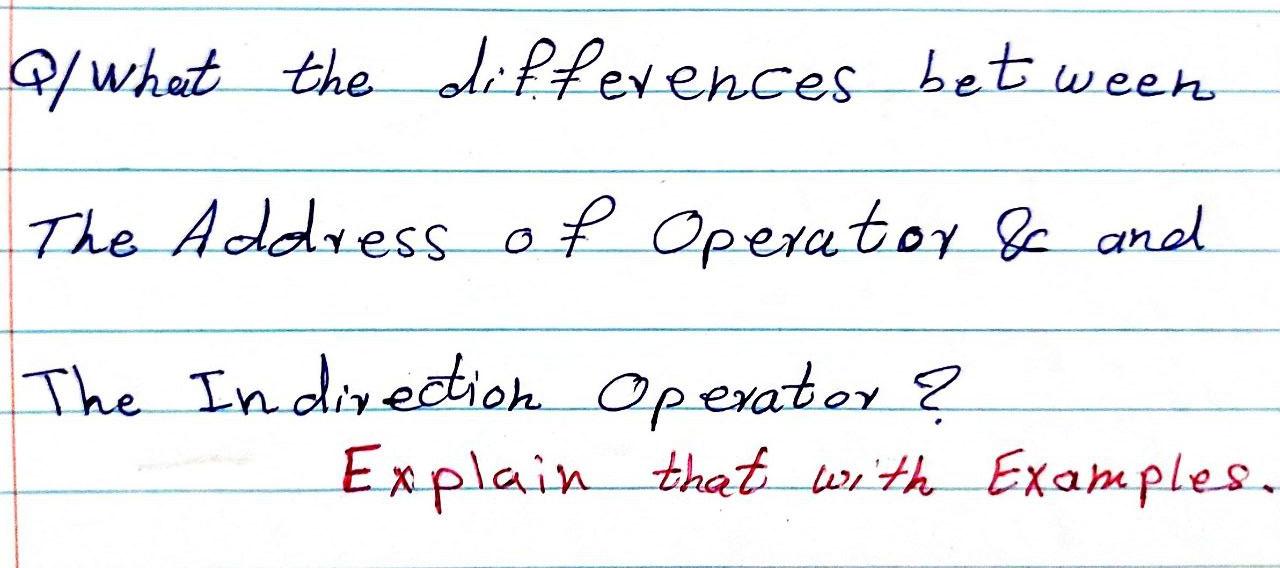 Q/What the differences between
The Address of Operator & and
The Indirection Operator?
Explain that with Examples.